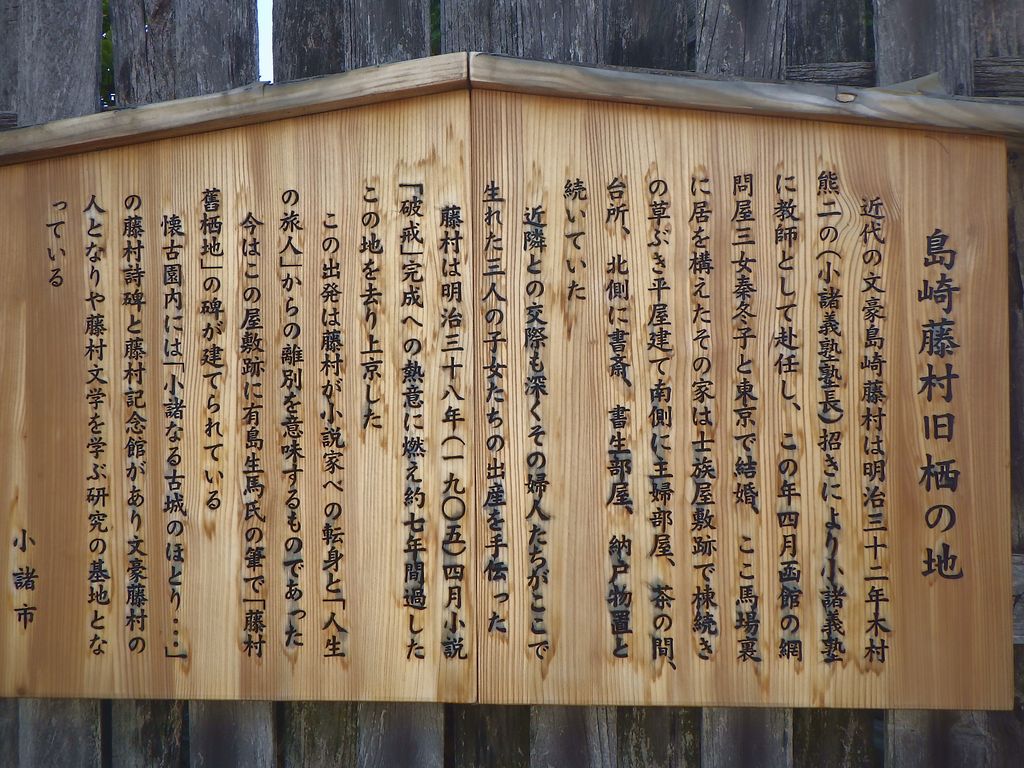 島崎藤村旧栖の地
近代の文豪島崎藤村は明治三十二年木村
熊二の(小諸義塾塾長)招きにより小諸義塾
に教師として赴任し、この年四月函館の網
問屋三女秦冬子と東京で結婚、ここ馬場裏
に居を構えたその家は士族屋敷跡で棟続き
の草ぶき平屋建て南側に主婦部屋、茶の間、
台所、北側に書斎、書生部屋、納戸物置と
続いていた
近隣との交際も深くその婦人たちがここで
生れた三人の子女たちの出産を手伝った
藤村は明治三十八年(一九〇五)四月小説
「破戒」完成への熱意に燃え約七年間過した
この地を去り上京した
この出発は藤村が小説家への転身と「人生
の旅人」からの離別を意味するものであった
今はこの屋敷跡に有島生馬氏の筆で「藤村
舊栖地」の碑が建てられている
懐古園内には「小諸なる古城のほとり・・・」
の藤村詩碑と藤村記念館があり文豪藤村の
人となりや藤村文学を学ぶ研究の基地とな
っている
小諸市